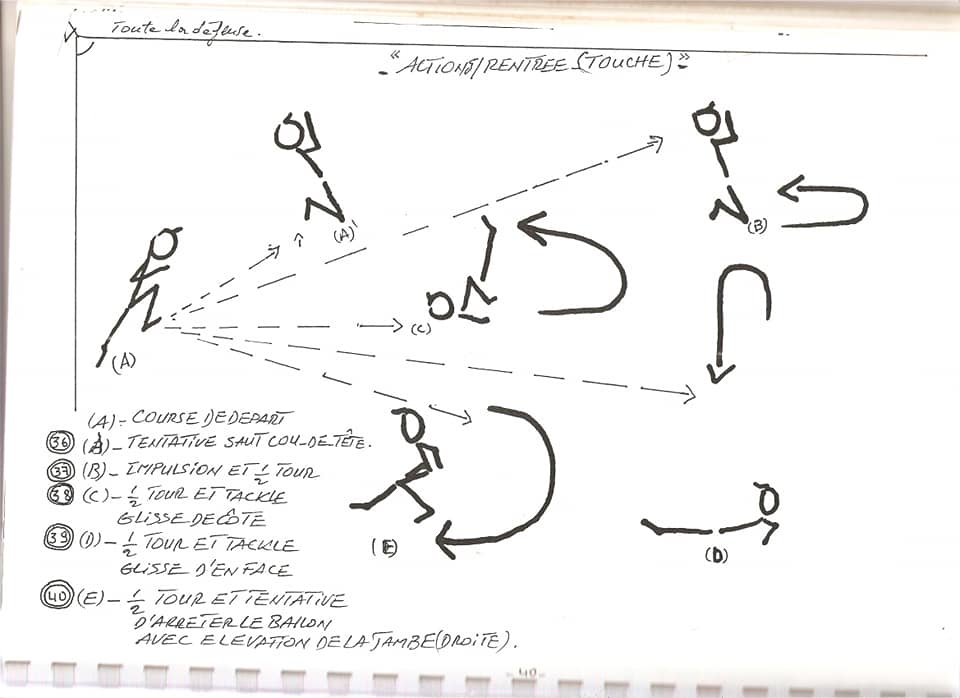 Toute la défense.
"ACTIONS/RENTREE (TOUCHE)"
(A)
(A)'
(B)
(C)
(E)
(D)
(A)- COURSE DE DEPART
36 (A)- TENTATIVE SAUT COU-DE-TÊTE.
37 (B)- IMPULSION ET 1/2 TOUR
38 (C)- 1/2 TOUR ET TACKLE
GLISSE DE CÔTE
39 (D)- 1/2 TOUR ET TACKLE
GLISSE D'EN FACE
40 (E)- 1/2 TOUR ET TENTATIVE
D'ARRETER LE BALLON
AVEC ELEVATION DE LA JAMBE (DROITE).
- 40 -